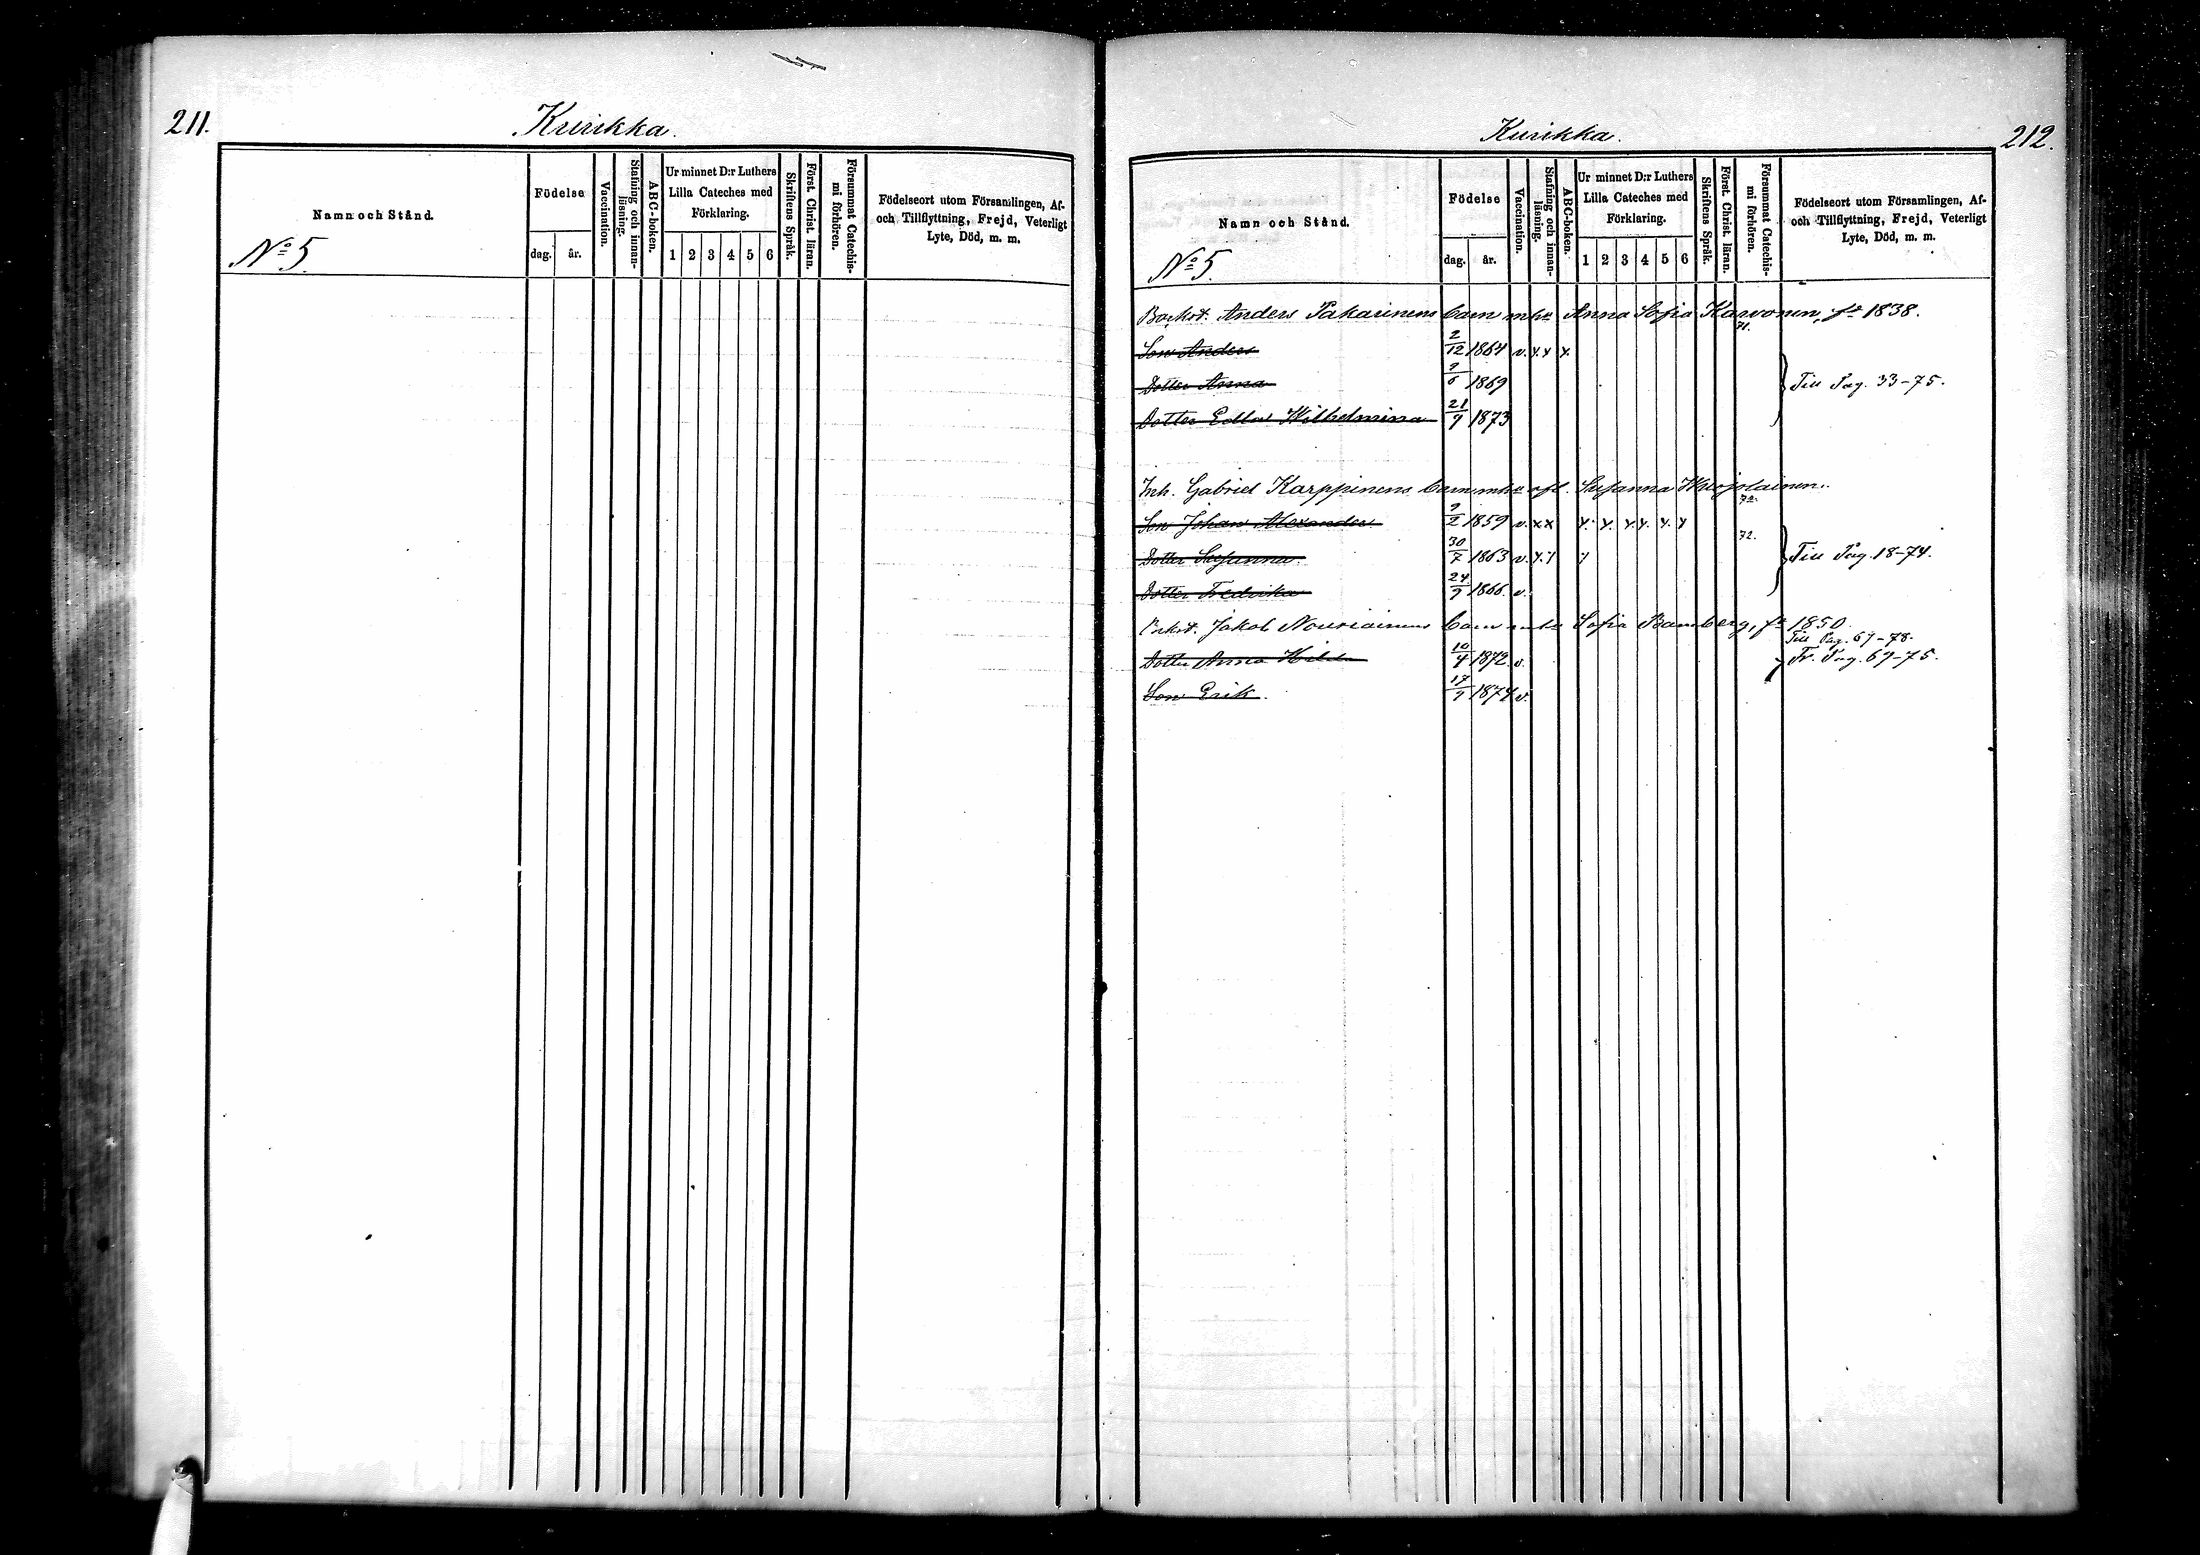 211.
Kurikka.
Namn och Stånd.
No 5.
Födelse
dag.
år.
Vaccination.
Stafning och innan-
läsning.
ABC-boken.
Ur minnet D:r Luthers
Lilla Cateches med
Förklaring.
1 2 3 4 5 6
Skriftens Språk.
Först. Christ. läran.
Försummat Catechis-
mi förhören.
Födelseort utom Församlingen, Af-
och Tillflyttning, Frejd, Veterligt
Lyte, Död, m. m.
Kurikka.
212.
Namn och Stånd.
No 5.
Födelse
dag.
år.
Vaccination.
Stafning och innan-
läsning.
ABC-boken.
Ur minnet D:r Luthers
Lilla Cateches med
Förklaring.
1 2 3 4 5 6
Skriftens Språk.
Först. Christ. läran.
Försummat Catechis-
mi förhören.
Födelseort utom Församlingen, Af-
och Tillflyttning, Frejd, Veterligt
Lyte, Död, m. m.
Anders Pakarinens barn m hu Anna Sofia Karvonen, fd 1838.
71.
Son Anders 2/12 1864 v. x x x
Dotter Anna 1869 Till Pag. 33-75.
Dotter Edla Wilhelmina 21/9 1873
Inh. Gabriel Karppinens barn m hu afl. Susanna
72.
Son Johan Alexander 9/2 1859 v. x x x x x x x x
72.
Dotter Susanna 30/7 1863 v. x x x Till Pag. 18-74.
Dotter Fredrika 24/9 1866. v.
Jakob barn m hu Sofia Bamberg, fd 1850.
Till Pag. 67-78.
Dotter Anna Hilda 10/4 1872. v. Fr. Pag. 67-75.
Son Erik. 17/9 1874 v.